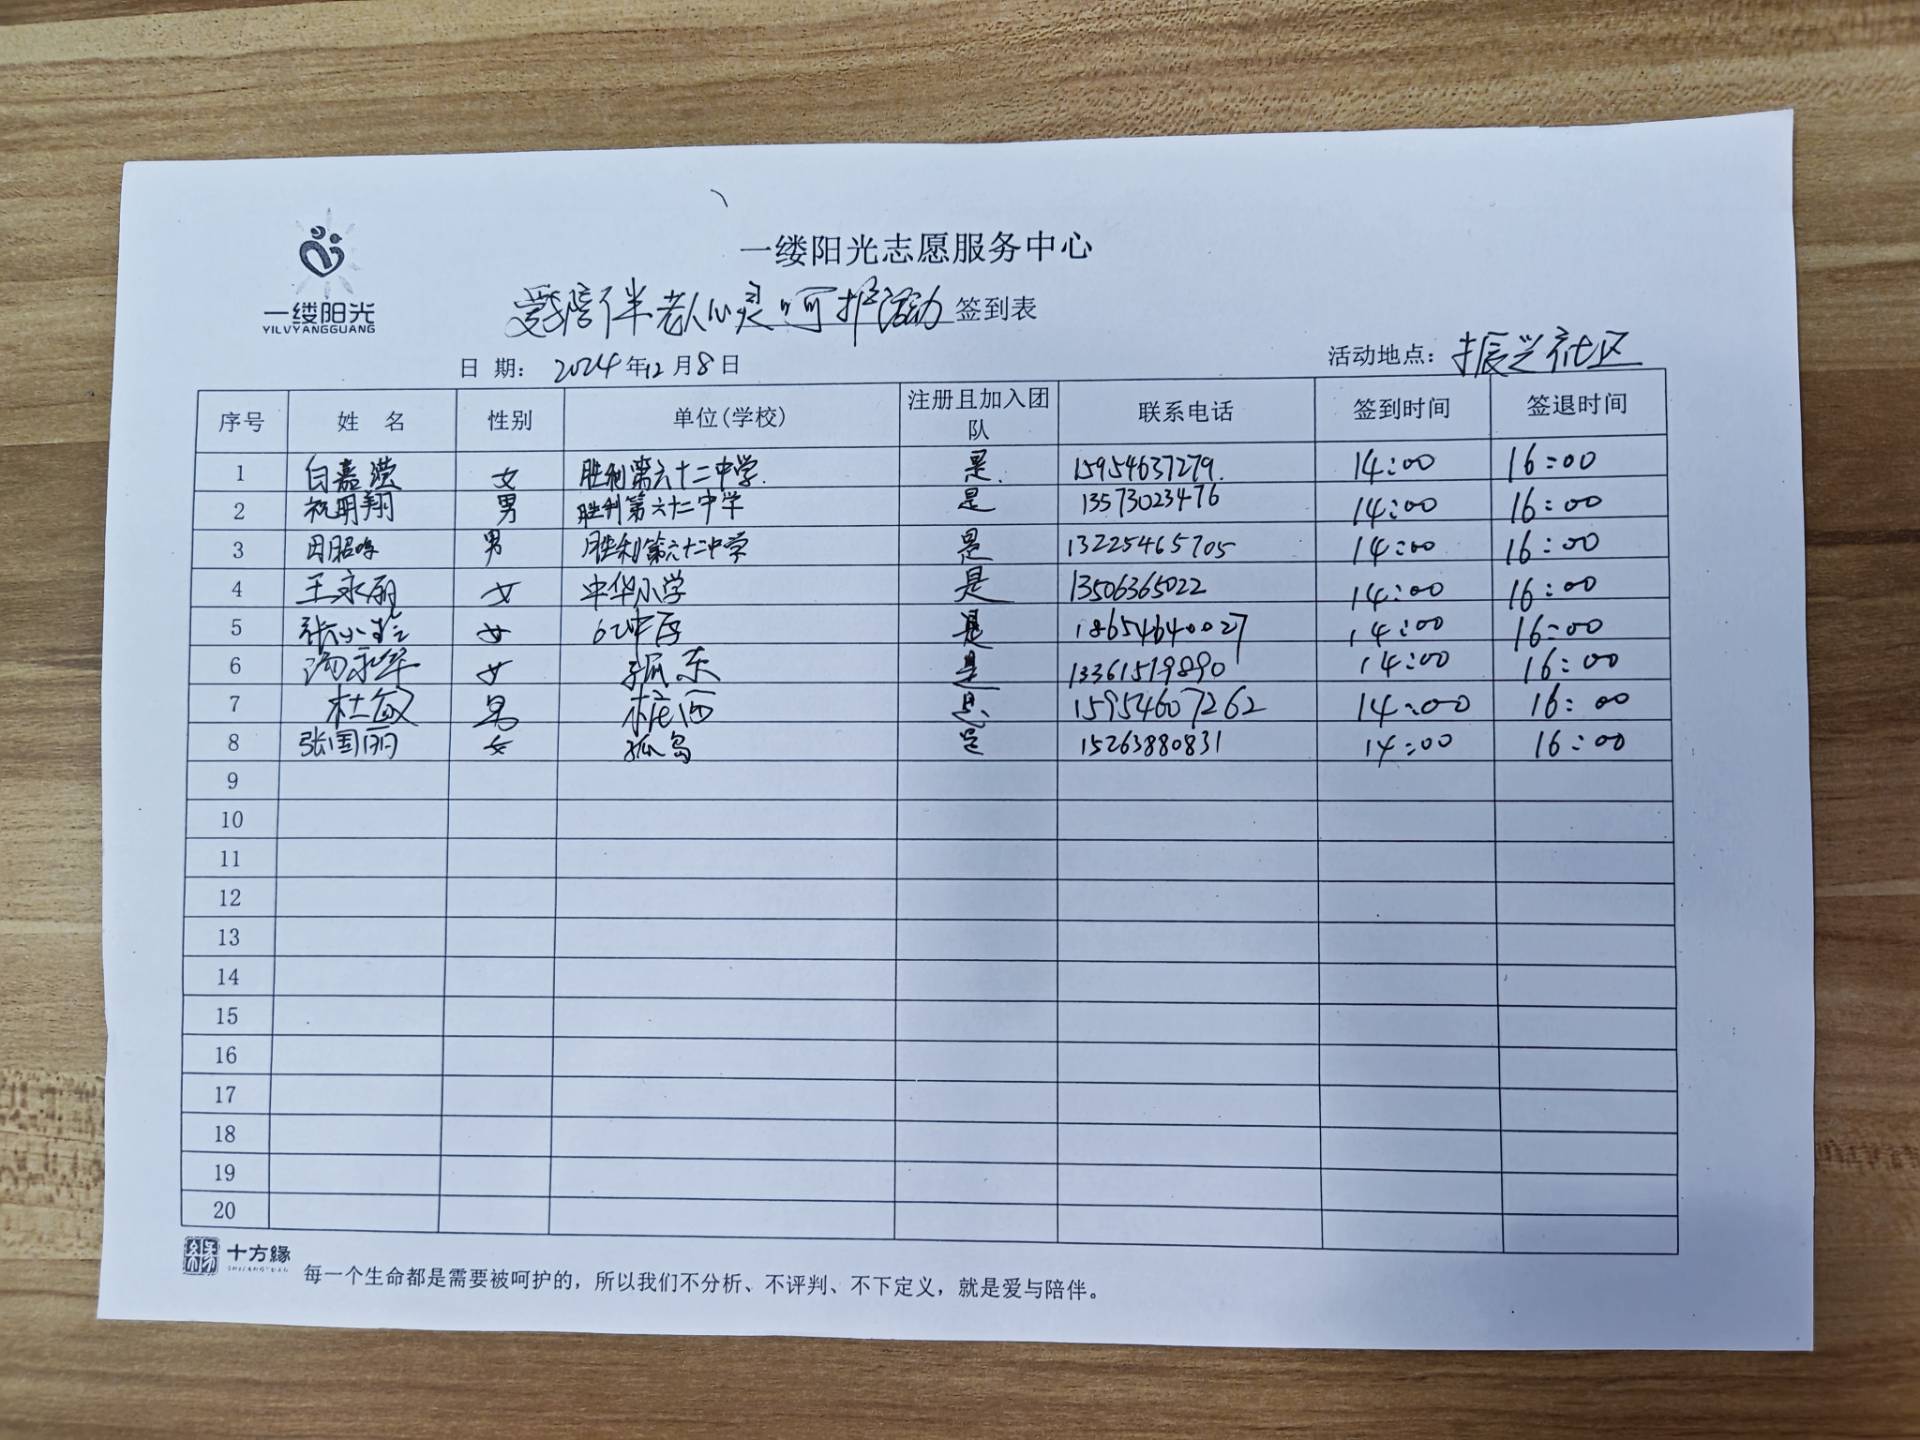 一缕阳光
YILVYANGGUANG
一缕阳光志愿服务中心
爱陪伴老人心灵呵护活动 签到表
日 期： 2024年12月8日 活动地点：振兴社区
序号 姓 名 性别 单位(学校) 注册且加入团队 联系电话 签到时间 签退时间
1 白嘉滢 女 胜利第六十二中学. 是. 15954637279. 14:00 16:00
2 祝明翔 男 胜利第六十二中学 是 13573023476 14:00 16:00
3 男 胜利第六十二中学 是 13225465705 14:00 16:00
4 王永丽 女 中华小学 是 13506365022 14:00 16:00
5 张小 女 是 18654640027 14:00 16:00
6 女 孤东 是 13361519890 14:00 16:00
7 杜敏 男 桩西 是 15954607262 14:00 16:00
8 张国丽 女 孤岛 是 15263880831 14:00 16:00
9
10
11
12
13
14
15
16
17
18
19
20
十方緣
每一个生命都是需要被呵护的，所以我们不分析、不评判、不下定义，就是爱与陪伴。